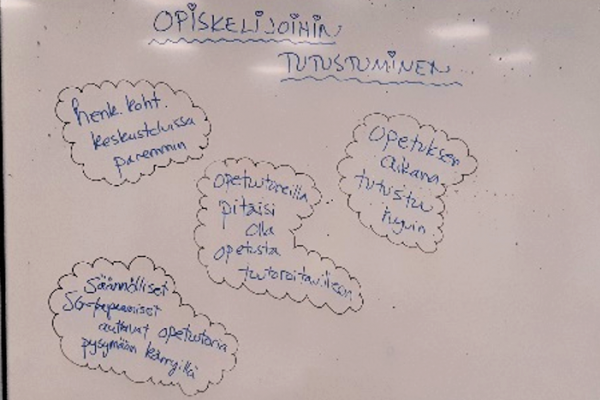 OPISKELIJOIHIN
TUTUSTUMINEN
henk.koht.
keskusteluissa
paremmin
Opetuksen
aikana
tutustuu
hyvin
Opetustoreilla
pitäisi
olla
opetusta
tuutoroitavilleen
Säännölliset
autavat opetustoria
pysymään kärryillä